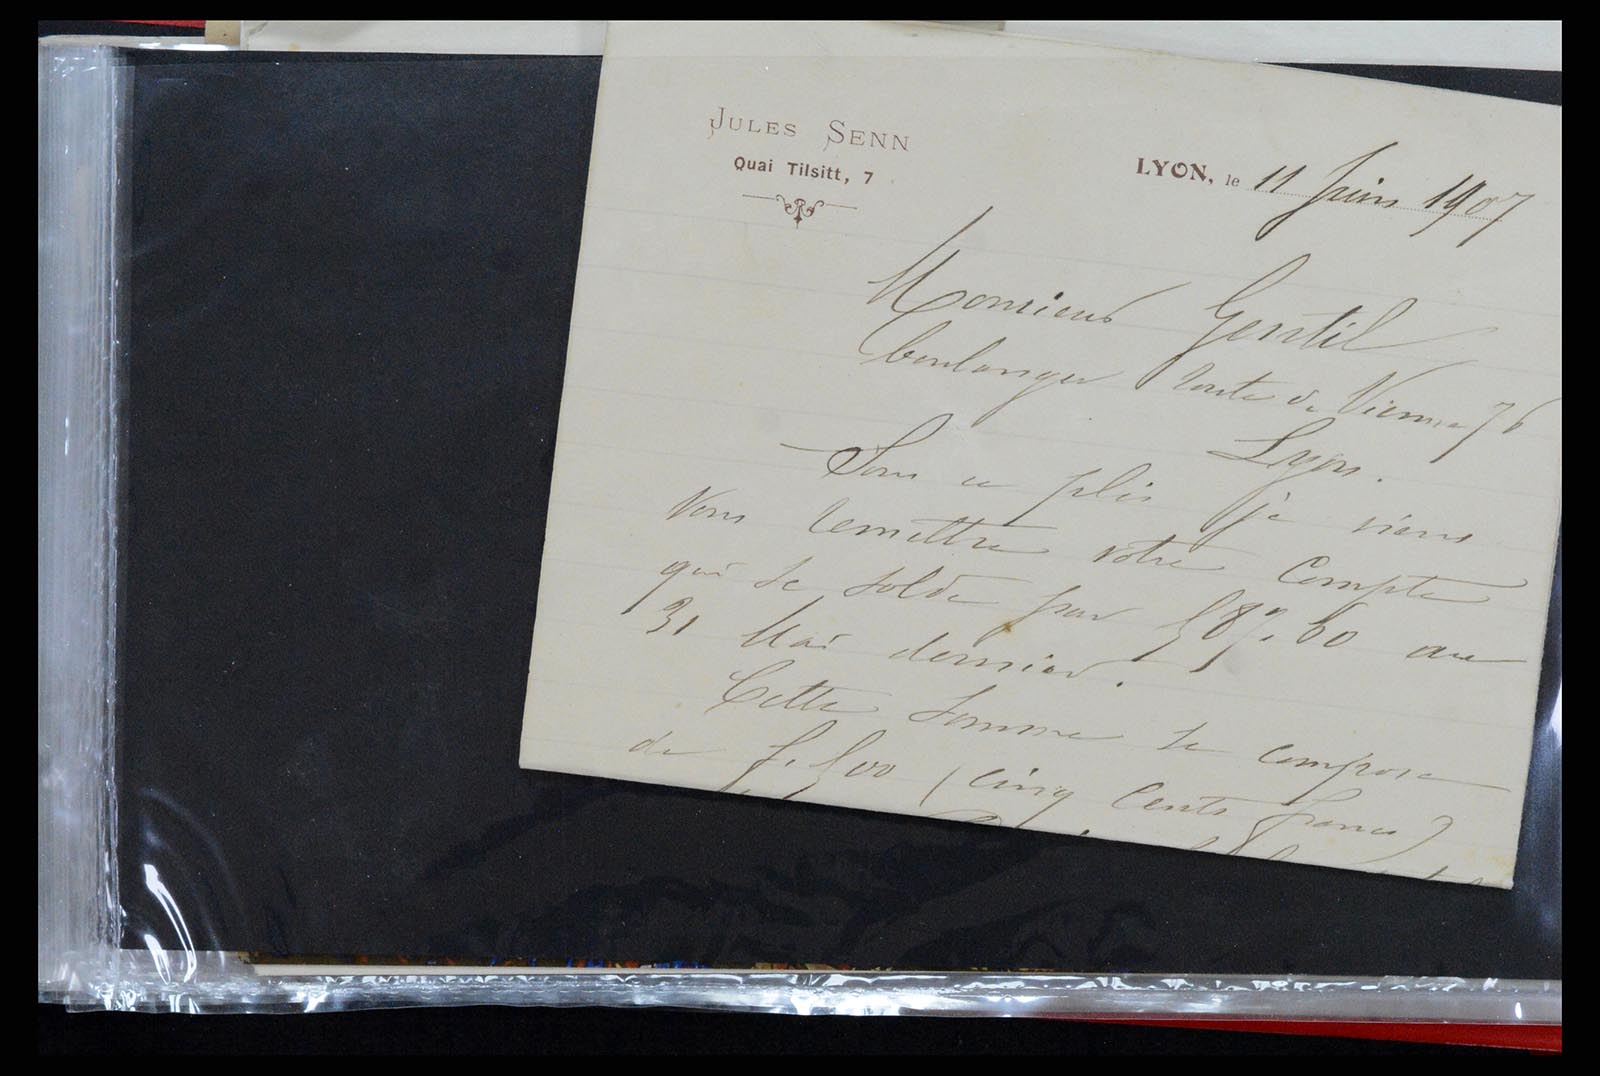 JULES SENN
Quai Tilsitt, 7
LYON, le 11 Juin 1907
Monsieur Gentil
boulanger route de Vienne 76
Lyon.
Sous ce plis je viens
Vous remettre votre Compte
qui se solde par 587.60 au
31 Mai dernier.
Cette somme se compose
de f. 500 (cinq cents francs)